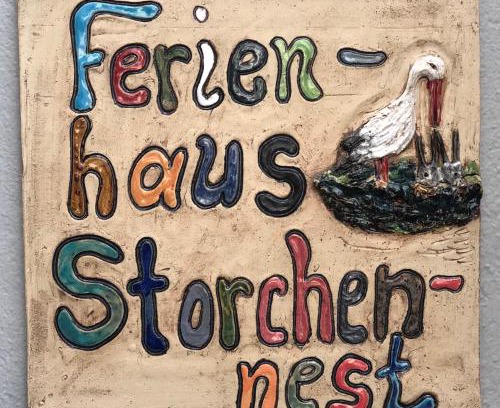 Ferien-
haus
Storchen-
nest